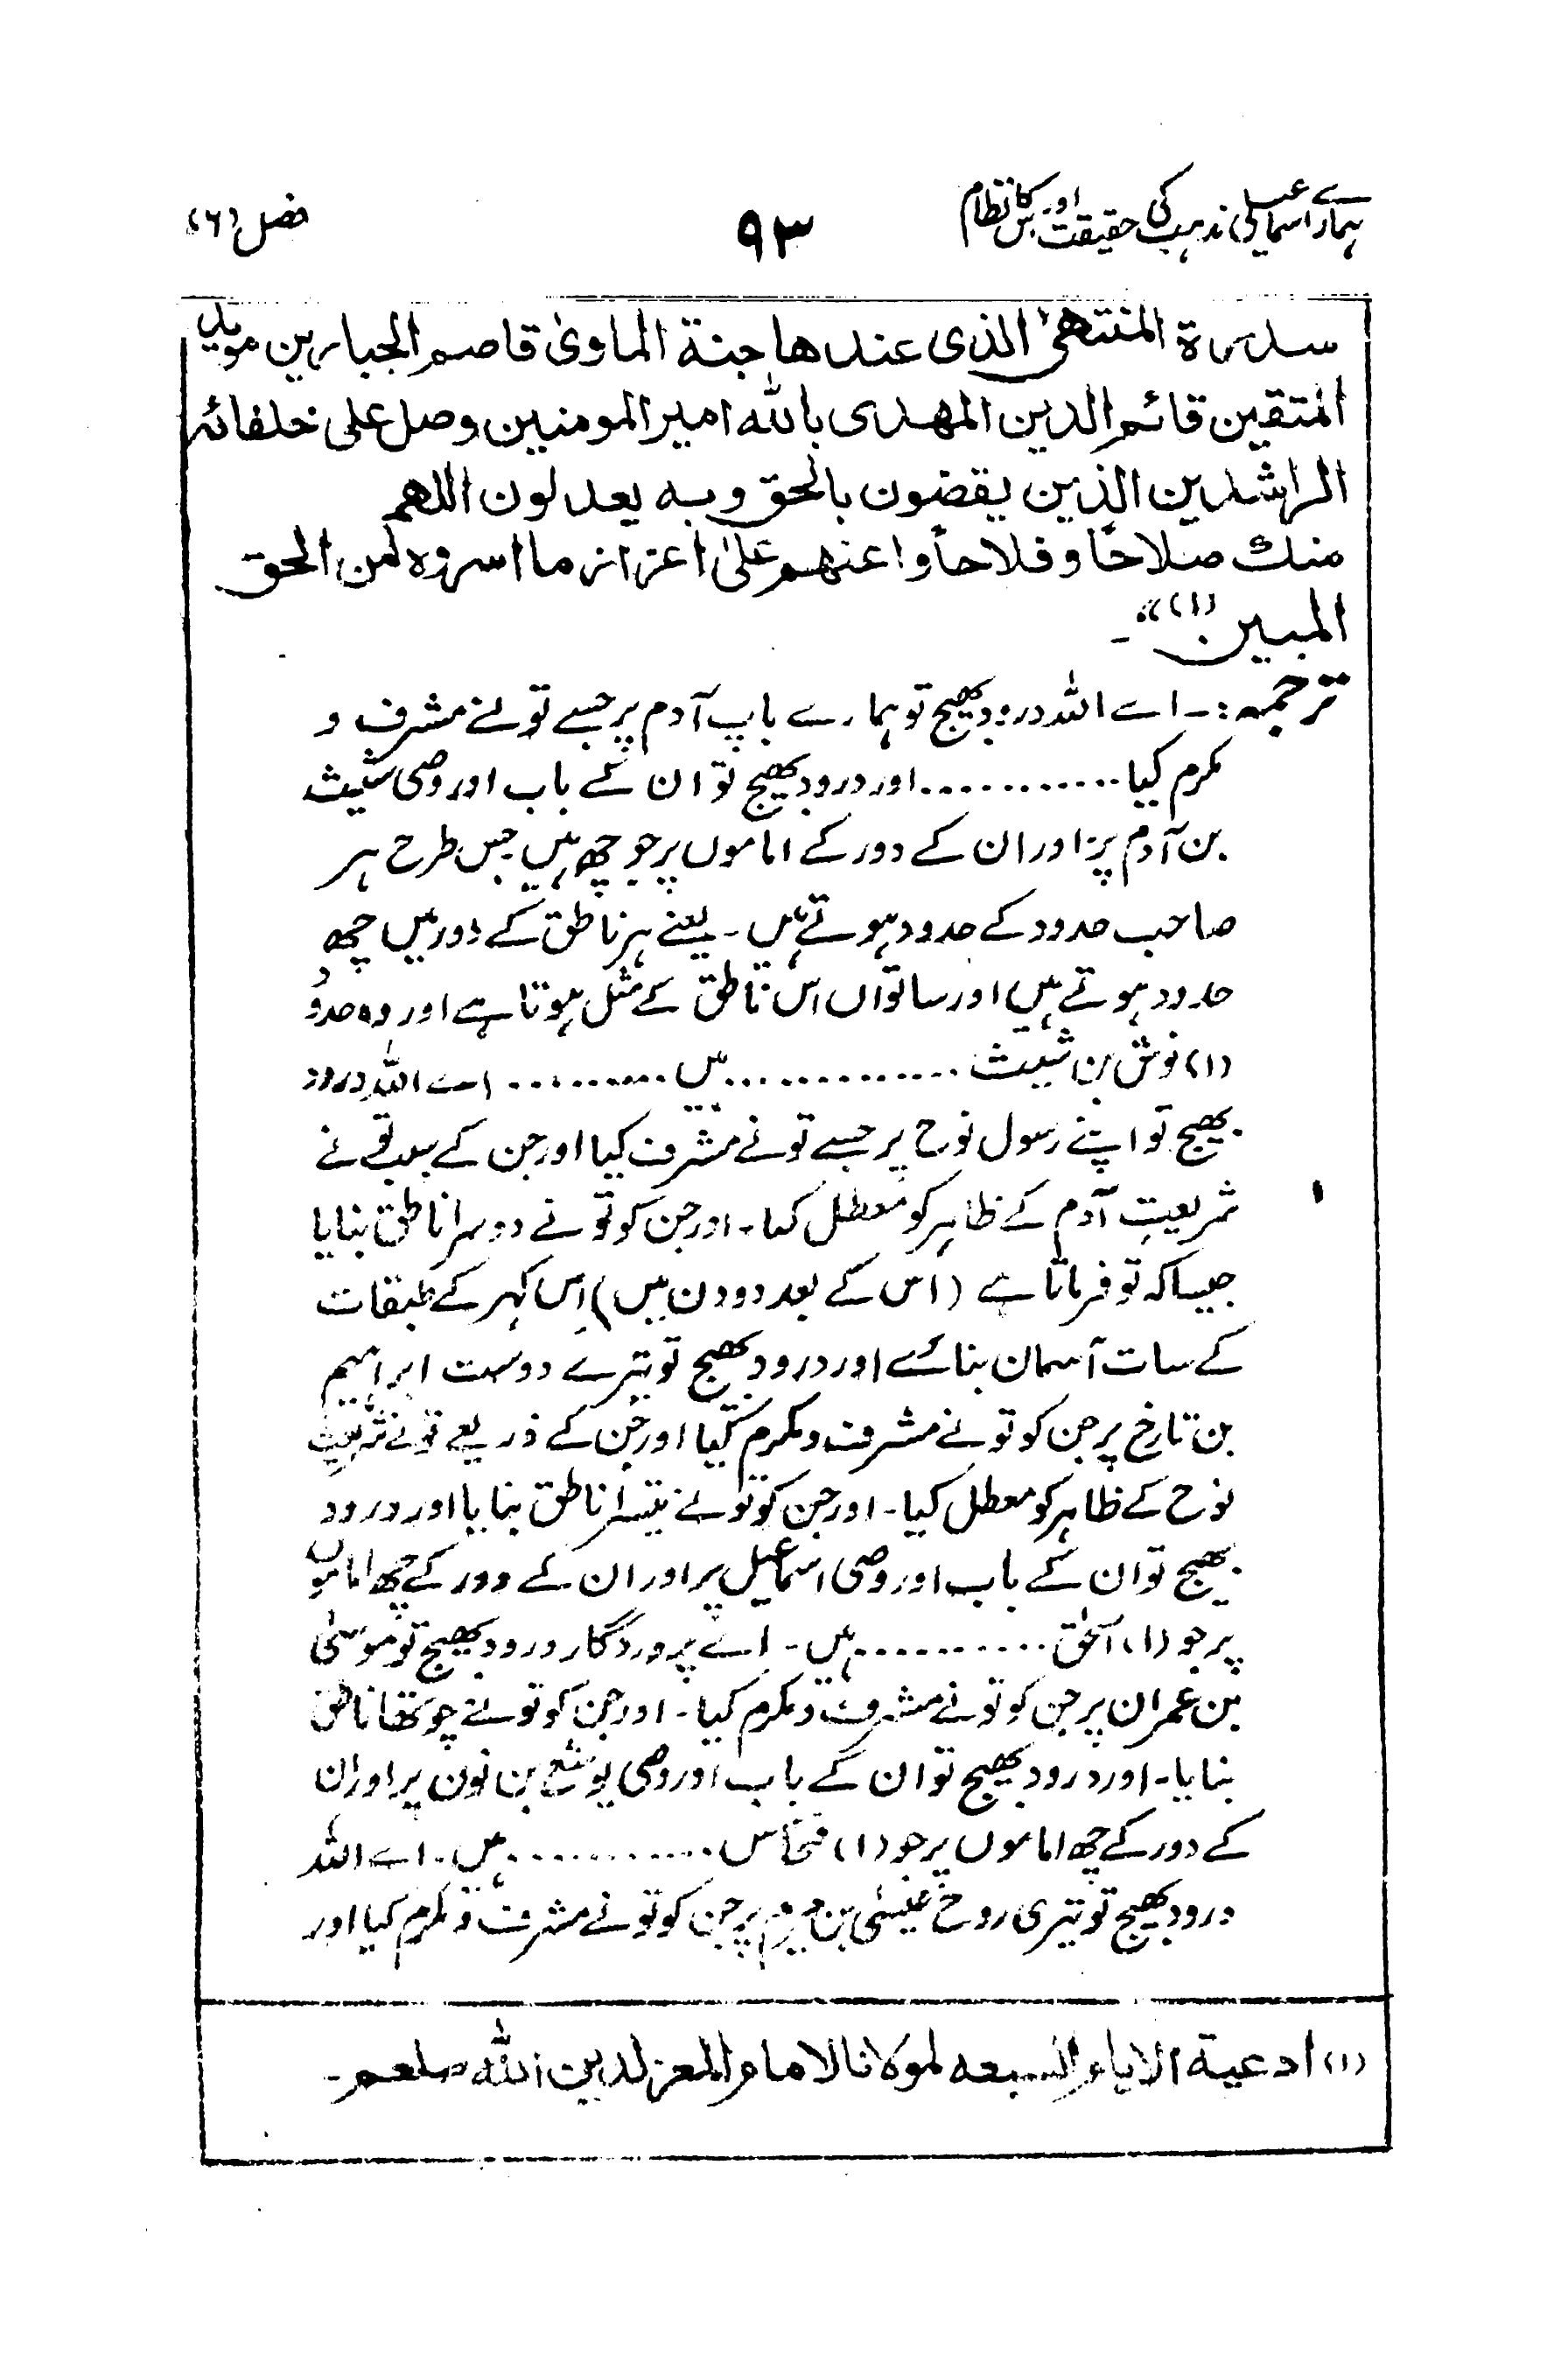 ہمارے اسماعیلی مذہب کی حقیقت اور اس کا نظام
۹۳
فصل (۶)
سدرۃ المنتھیٰ الذی عندھا جنة الماویٰ قاصم الجبارین موید
المتقین قائم الدین المھدی باللہ امیر المومنین وصل علی خلفائہ
الراشدین الذین یقضون بالحق وبہ یعدلون اللھم
منك صلاحاً وفلاحاً واعنھم علیٰ اعزاز ما اسروہ لمن الحق
المبین (۱)"۔
ترجمہ :۔ اے اللہ درود بھیج تو ہمارے باپ آدم پر جسے تو نے مشرف و
مکرم کیا ............ اور درود بھیج تو ان کے باب اور وصی شیث
بن آدم پر اور ان کے دور کے اماموں پر جو چھ ہیں جس طرح ہر
صاحب حدود کے حدود ہوتے ہیں ۔ یعنے ہر ناطق کے دور میں چھ
حدود ہوتے ہیں اور ساتواں اس ناطق کے مثل ہوتا ہے اور وہ حدود
(۱) نوش بن شیث .............. ہیں .......... اے اللہ درود
بھیج تو اپنے رسول نوح پر جسے تو نے مشرف کیا اور جن کے سبب تو نے
شریعتِ آدم کے ظاہر کو معطل کیا ۔ اور جن کو تو نے دوسرا ناطق بنایا
جیسا کہ تو فرماتا ہے (اس کے بعد دو دن میں) اِس کہر کے طبقات
کے سات آسمان بنائے اور درود بھیج تو تیرے دوست ابراہیم
بن تارخ پر جن کو تو نے مشرف و مکرم کیا اور جن کے ذریعے تو نے شریعتِ
نوح کے ظاہر کو معطل کیا ۔ اور جن کو تو نے تیسرا ناطق بنایا اور درود
بھیج تو ان کے باب اور وصی اسماعیل پر اور ان کے دور کے چھ اماموں
پر جو (۱) اسحٰق ........... ہیں ۔ اے پروردگار درود بھیج تو موسیٰ
بن عمران پر جن کو تو نے مشرف و مکرم کیا ۔ اور جن کو تو نے چوتھا ناطق
بنایا ۔ اور درود بھیج تو ان کے باب اور وصی یوشع بن نون پر اور ان
کے دور کے چھ اماموں پر جو (۱) فنحاس ............ ہیں ۔ اے اللہ
درود بھیج تو تیری روح عیسیٰ بن مریم پر جن کو تو نے مشرف و مکرم کیا اور
(۱) ادعیة الایام السبعه لمولانا الامام المعز لدین اللہ صلعم ۔